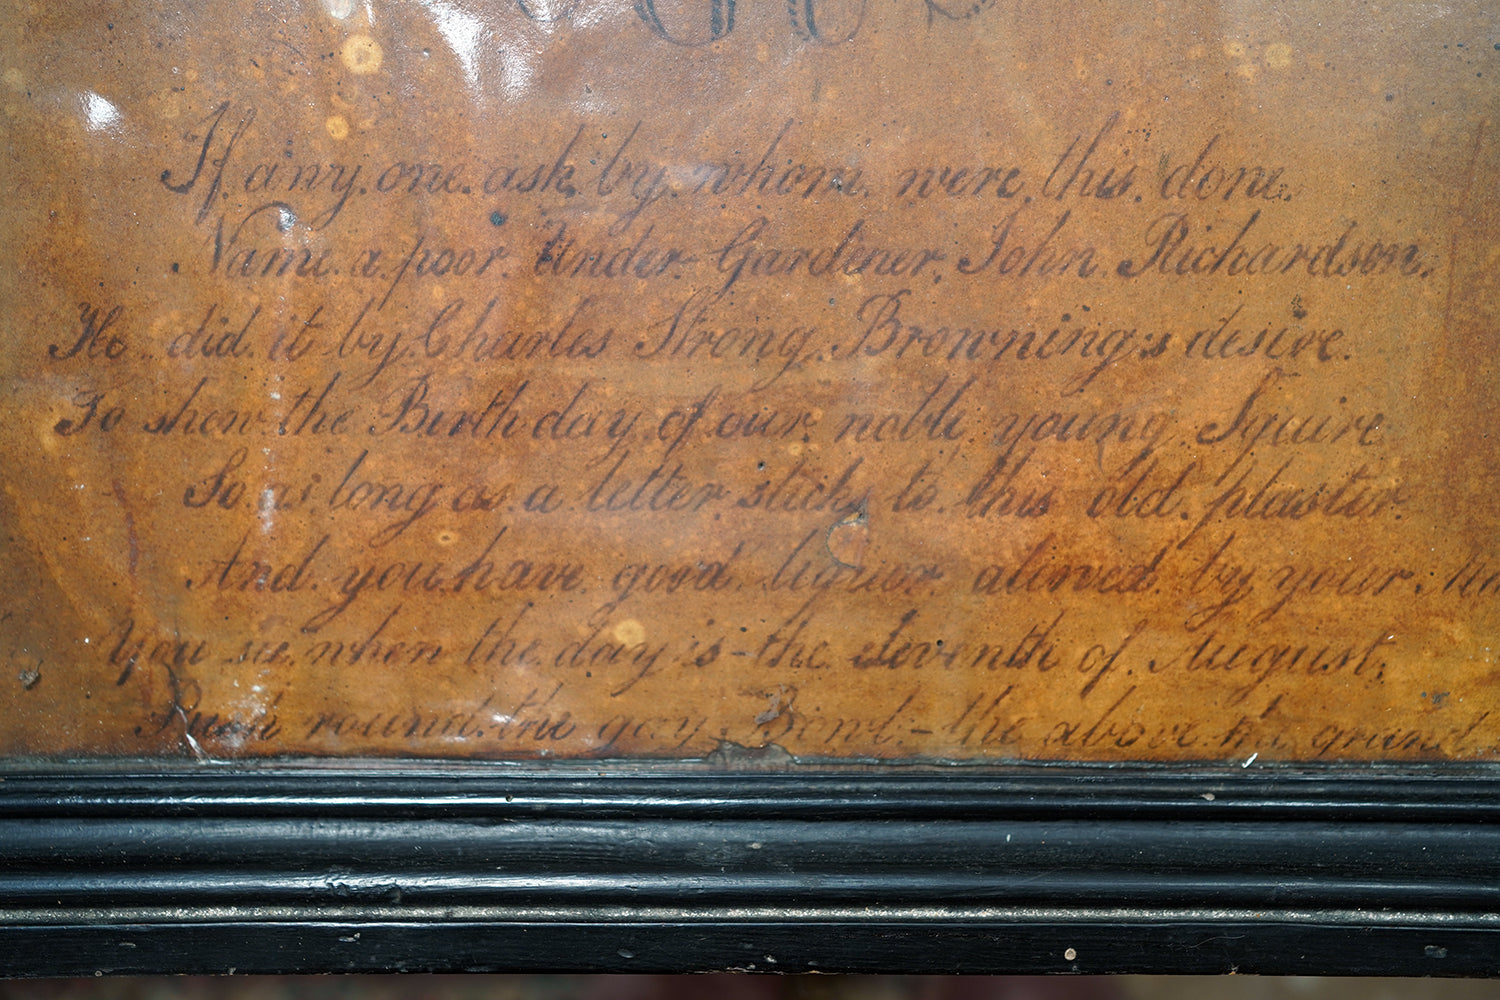 If any one ask by whom were this done.
Name a poor Under Gardener, John Richardson.
He did it by Charles Strong Browning's desire.
To shew the Birth day of our noble young Squire
So as long as a letter sticks to this old plaister.
And you have good liquor alowed by your
You sie when the day is - the eleventh of August,
Push round the gay Bowl - the above